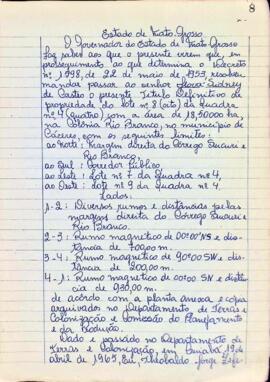 8
Estado de Mato Grosso
O Governador do Estado de Mato Grosso
Faz saber aos que o presente virem que, em
prosseguimento ao que determina o Decreto
nº 1998, de 22 de maio de 1953, resolveu
mandar passar ao senhor Sidney
de Castro o presente Título Definitivo de
propriedade do lote nº 8 (oito) da Quadra
nº 4 (quatro) com a área de 18,5000 ha,
na Colônia Rio Branco, no município de
Cáceres, com os seguinte limites:
ao Norte: Margem direita do Corrego Sucuri e
Rio Branco,
ao Sul: Corredor Público,
ao Leste: Lote nº 7 da Quadra nº 4,
ao Oeste: Lote nº 9 da Quadra nº 4.
Lados:
1-2: Diversos rumos e distâncias pelas
margens direita do Corrego Sucuri e
Rio Branco.
2-3: Rumo magnético de 00º00'NS e dis-
tância de 700,00 m.
3-4: Rumo magnético de 90º00'SW e dis-
tância de 200,00 m.
4-1: Rumo magnético de 00º00 SN e distân-
cia de 930,00 m.
de acordo com a planta anexa e copia
arquivado no Departamento de Terras e
Colonização e Comissão do Planejamento
e da Produção.
Dado e passado no Departamento de
Terras e Colonização, em Cuiabá, 19 de
abril de 1965. Eu, Jorge